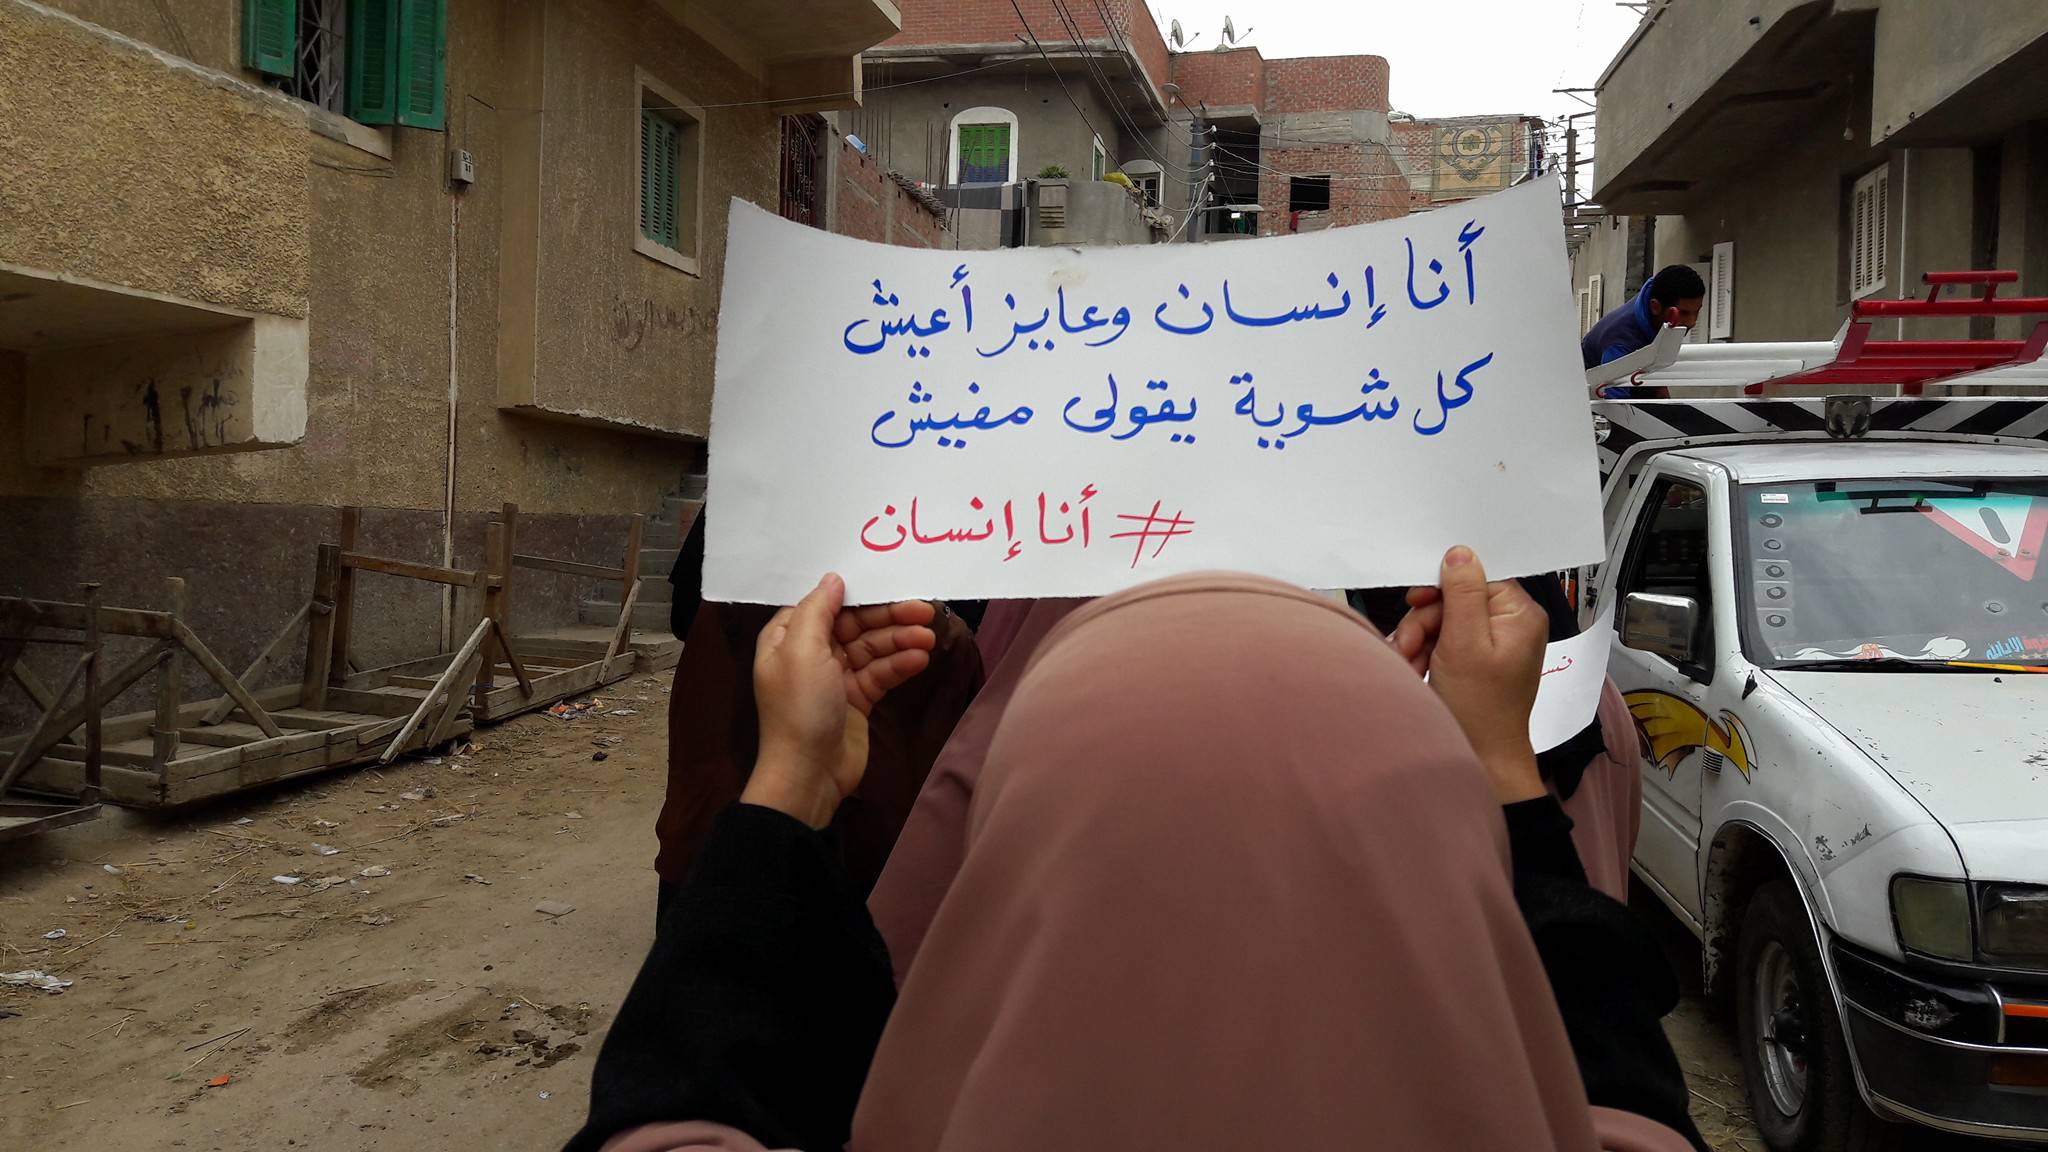 أنا إنسان وعايز أعيش
كل شوية يقولى مفيش
# أنا إنسان